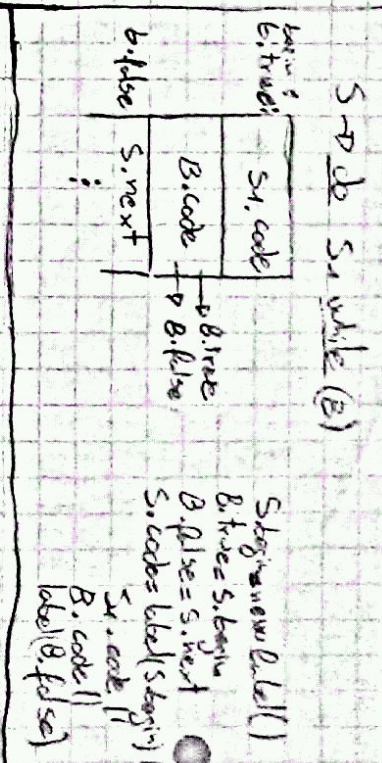 S → do S1 while (B)
begin :
b.true:
S1.code
B.code
→ B.true
→ B.false
b.false
S.next
⋮
S.begin=newlabel()
B.true=S.begin
B.false=S.next
S.code=label(S.begin)
S1.code ||
B.code ||
label(B.false)